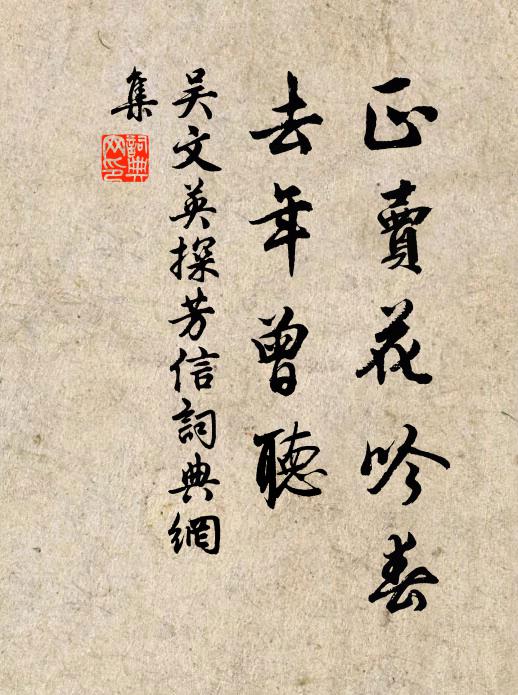 正賣花吟春
去年曾聽
吳文英探芳信詞典網
集
詞典
网印